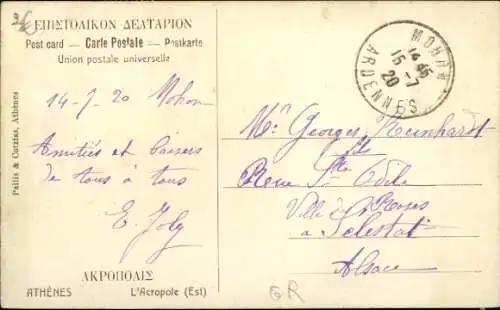 ΕΠΙΣΤΟΛΙΚΟΝ ΔΕΛΤΑΡΙΟΝ
Post card — Carte Postale — Postkarte
Union postale universelle
MOHON
14 45
15 - 7
20
ARDENNES
14-7 20 Mohon
Amitiés et baisers
de tous à tous
E. Joly
Mr Georges Reinhardt
Rue Ste Odile
Ville des Roses
à Sélestat
Alsace
Pallis & Cotzias, Athènes
ΑΚΡΟΠΟΛΙΣ
ATHÈNES L'Acropole (Est)
GR